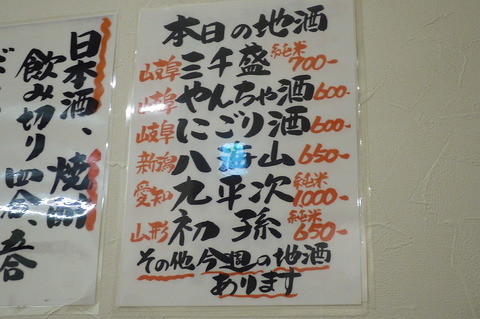 本日の地酒
岐阜 三千盛 純米 700-
岐阜 やんちゃ酒 600-
岐阜 にごり酒 600-
新潟 八海山 650-
愛知 九平次 純米 1000-
山形 初孫 純米 650-
その他今週の地酒
あります
日本酒、焼酎
飲み切り四合、五合